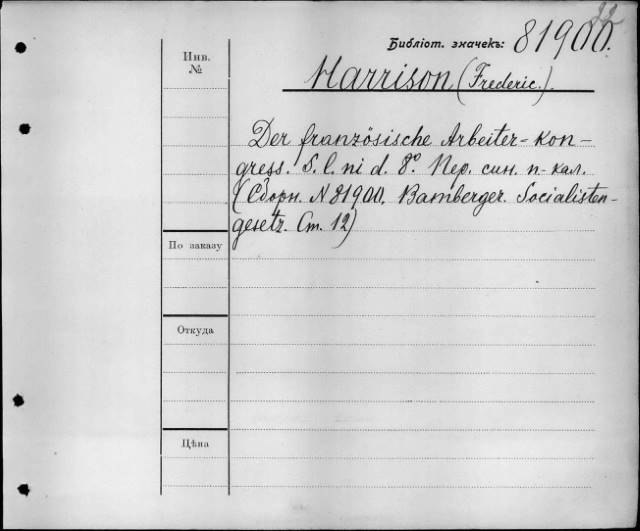 22
Библіот. значекъ: 81900.
Инв.
№
Harrison (Frederic.).
Der französische Arbeiter-kon-
gress. S. l. ni d. 8º. Пер. син. п-кал.
(Сборн. N 81900. Bamberger. Socialisten-
gesetz. Ст. 12)
По заказу
Откуда
Цѣна